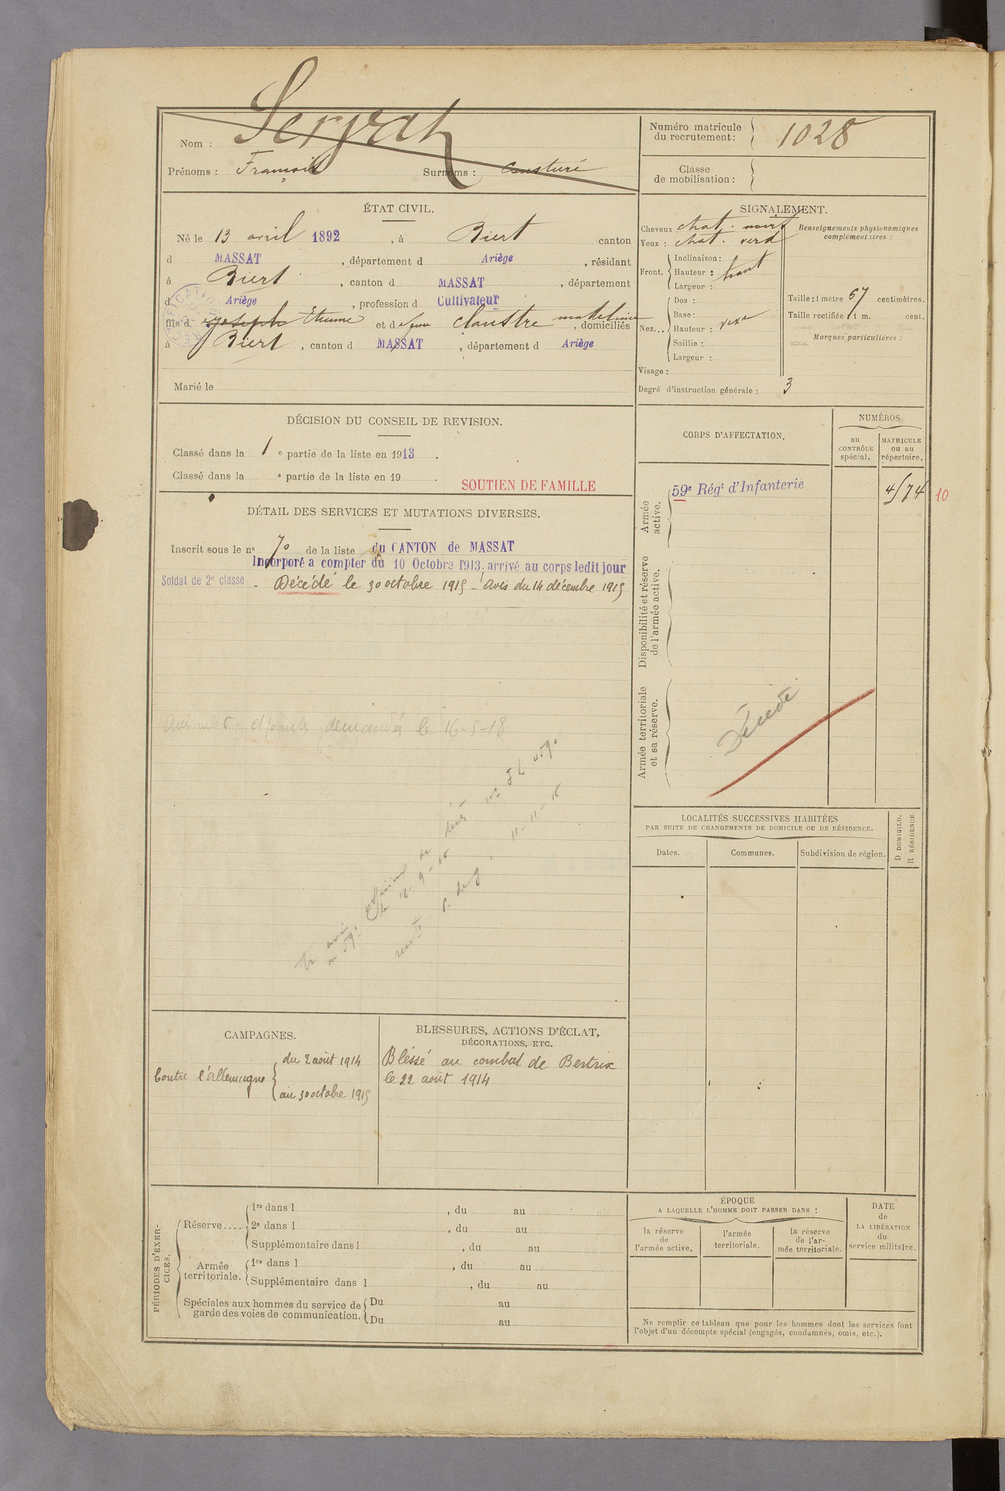 Nom : Servat
Prénoms : François Surnoms : Cousturé
Numéro matricule du recrutement : 1028
Classe de mobilisation :
ÉTAT CIVIL.
Né le 13 avril 1892, à Biert canton
d MASSAT, département d Ariège, résidant
à Biert, canton d MASSAT, département
d Ariège, profession d Cultivateur
fils d Joseph Etienne et de feue Claustre Madeleine, domiciliés
à Biert, canton d MASSAT, département d Ariège
Marié le
SIGNALEMENT.
Cheveux chat. noirs
Yeux : chat. verd
Front. Inclinaison :
Hauteur : haut
Largeur :
Nez... Dos :
Base :
Hauteur : rexe
Saillie :
Largeur :
Visage :
Degré d'instruction générale : 3
Renseignements physionomiques complémentaires :
Taille : 1 mètre 67 centimètres.
Taille rectifiée 1 m. cent.
Marques particulières :
DÉCISION DU CONSEIL DE REVISION.
Classé dans la 1e partie de la liste en 1913.
Classé dans la e partie de la liste en 19 .
SOUTIEN DE FAMILLE
DÉTAIL DES SERVICES ET MUTATIONS DIVERSES.
Inscrit sous le n° 70 de la liste du CANTON de MASSAT
Incorporé a compter du 10 Octobre 1913, arrivé au corps ledit jour
Soldat de 2e classe - Décédé le 30 octobre 1915 - Avis du 14 décembre 1915
demandés le 16-5-18
CORPS D'AFFECTATION.
NUMÉROS
au CONTRÔLE spécial.
MATRICULE ou au répertoire.
Armée active.
59e Régt d'Infanterie
4174
10
Disponibilité et réserve de l'armée active.
Armée territoriale et sa réserve.
Décédé
LOCALITÉS SUCCESSIVES HABITÉES
PAR SUITE DE CHANGEMENTS DE DOMICILE OU DE RÉSIDENCE.
Dates.
Communes.
Subdivision de région.
D DOMICILE.
R RÉSIDENCE
CAMPAGNES.
Contre l'allemagne du 2 août 1914
au 30 octobre 1915
BLESSURES, ACTIONS D'ÉCLAT,
DÉCORATIONS, ETC.
Bléssé au combat de Bertrix
le 22 août 1914
PÉRIODES D'EXERCICES.
Réserve.... 1re dans l , du au
2e dans l , du au
Supplémentaire dans l , du au
Armée territoriale. 1re dans l , du au
Supplémentaire dans l , du au
Spéciales aux hommes du service de garde des voies de communication. Du au
Du au
ÉPOQUE
A LAQUELLE L'HOMME DOIT PASSER DANS :
la réserve de l'armée active.
l'armée territoriale.
la réserve de l'armée territoriale.
DATE de LA LIBÉRATION du service militaire.
Ne remplir ce tableau que pour les hommes dont les services font
l'objet d'un décompte spécial (engagés, condamnés, omis, etc.).